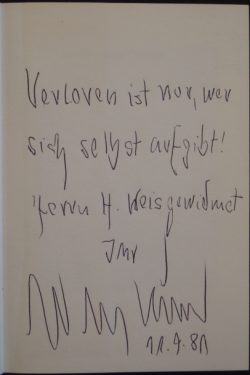 Verloren ist nur, wer
sich selbst aufgibt!
Herrn H. Weis gewidmet
Ihr